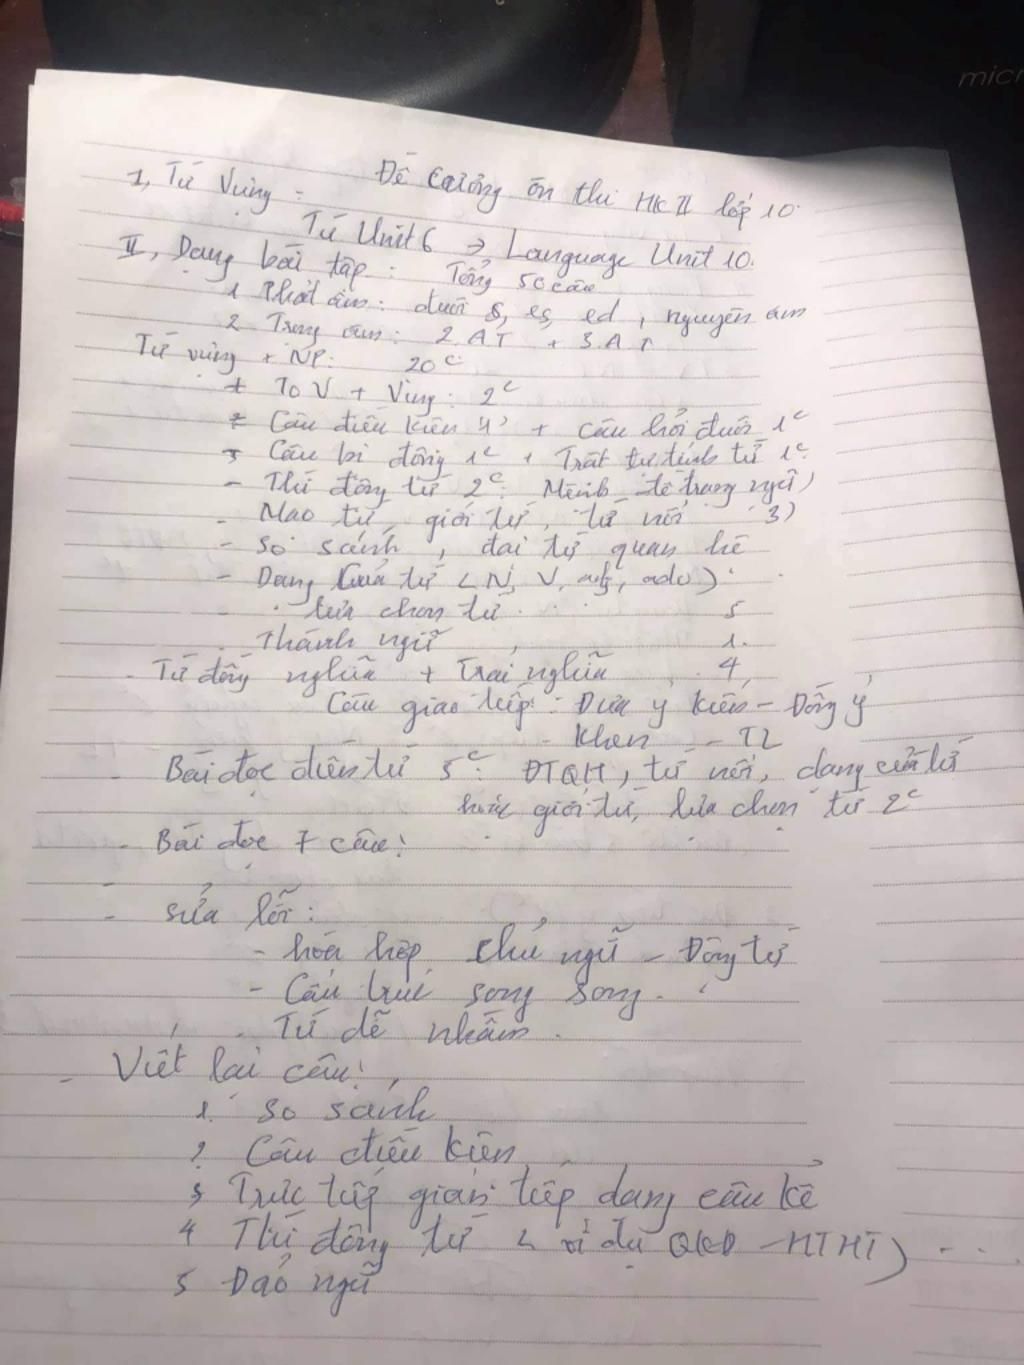 Đề Cương ôn thi HK II lớp 10.
1, Từ Vựng :
Từ Unit 6 → Language Unit 10.
II, Dạng bài tập : Tổng 50 câu
1 Phát âm : đuôi s, es, ed, nguyên âm
2 Trọng âm : 2 AT + 3 AT
Từ vựng + NP: 20 c
+ To V + Ving : 2 c
Câu điều kiện + câu hỏi đuôi 1 c
Câu bị động 1 c + Trật tự tính từ 1 c
- Thì động từ 2 c. Mệnh đề trạng ngữ)
- Mạo từ, giới từ, từ nối 3)
- So sánh, đại từ quan hệ
- Dạng của từ (N, V, adj, adv)
- lựa chọn từ 5
Thành ngữ 1.
- Từ đồng nghĩa + Trái nghĩa 4
Câu giao tiếp : Đưa ý kiến - Đồng ý
- Khen - TL
- Bài đọc điền từ 5 c : ĐTQH, từ nối, dạng của từ
hoặc giới từ, lựa chọn từ 2 c
- Bài đọc 7 câu :
- sửa lỗi :
- hòa hợp chủ ngữ - Động từ
- Cấu trúc song song.
- Từ dễ nhầm.
- Viết lại câu :
1. So sánh
2 Câu điều kiện
3 Trực tiếp gián tiếp dạng câu kể
4 Thì động từ ( ví dụ QKĐ - HTHT ) ...
5 Đảo ngữ